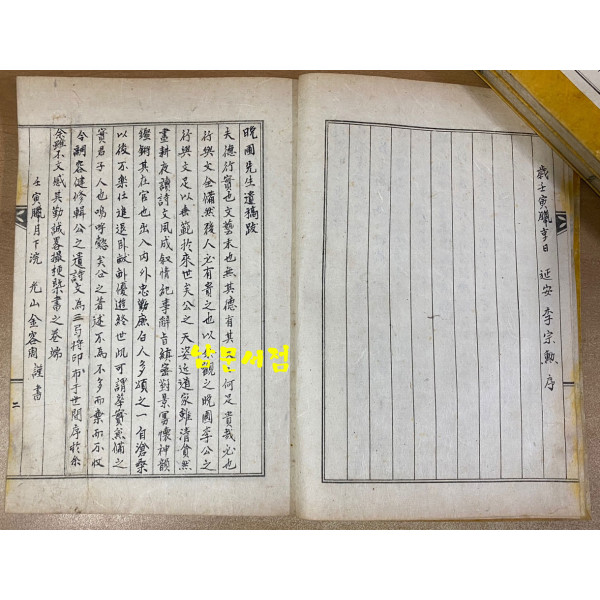 歲壬寅臘享日 延安 李宗勳 序
晩圃先生遺稿跋
夫德行實也文藝末也無其德有其文何足貴哉必也
行與文全備然後人必有貴之也以余觀之晩圃李公之
行與文足以垂範於來世矣公之天姿近道家雖清貧然
晝耕夜讀詩文夙成叙情記事辭旨縝密對景寫懷神韻
鏗鏘其在官也出入内外忠勤廉白人多頌之一自滄桑
以後不樂仕進退卧畎畝優遊終世沉可謂華實兼備之
實君子人也嗚呼懿矣公之著述不爲不多而棄而不收
令嗣容健修輯公之遺詩文爲三局將印布于世問序於余
余雖不文感其勤誠畧掇梗槩書之卷端
壬寅臘月下浣 光山 金容周 謹書
二
남문서점